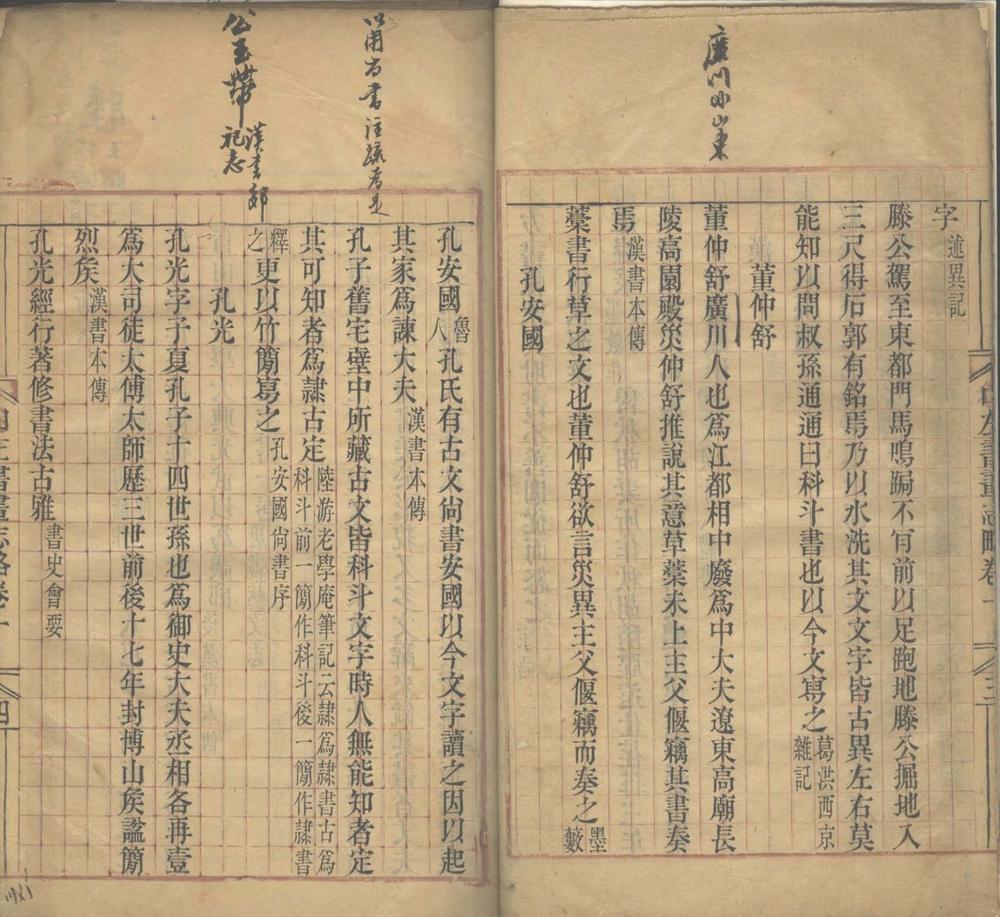 廣川
字 述異記
滕公駕至東都門馬鳴跼不肯前以足跑地滕公掘地入
三尺得石郭有銘焉乃以水洗其文文字皆古異左右莫
能知以問叔孫通通曰科斗書也以今文寫之 葛洪西京雜記
董仲舒
董仲舒廣川人也為江都相中廢為中大夫遼東高廟長
陵高園殿災仲舒推說其意草藁未上主父偃竊其書奏
焉 漢書本傳
藁書行草之文也董仲舒欲言災異主父偃竊而奏之 墨藪
孔安國
尚書注疏
公玉帶 漢書郊祀志
孔安國 魯人 孔氏有古文尙書安國以今文字讀之因以起
其家為諫大夫 漢書本傳
孔子舊宅壁中所藏古文皆科斗文字時人無能知者定
其可知者為隷古定 陸游老學庵筆記云隷為隷書古為科斗前一簡作科斗後一簡作隷書
釋之 更以竹簡寫之 孔安國尙書序
孔光
孔光字子夏孔子十四世孫也為御史大夫丞相各再壹
為大司徒太傅太師歷三世前後十七年封博山侯謚簡
烈侯 漢書本傳
孔光經行著修書法古雅 書史會要
四